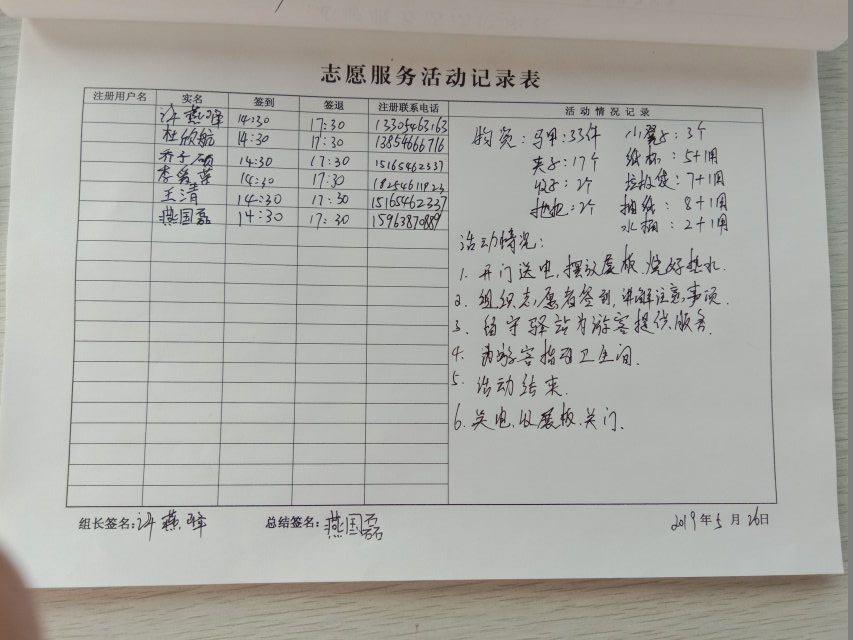 志愿服务活动记录表
注册用户名 实名 签到 签退 注册联系电话 活动情况记录
许燕峰 14:30 17:30 13305463163
杜欣航 14:30 17:30 13854666716
乔子硕 14:30 17:30 15165462337
李爱 14:30 17:30 18254611823
王清 14:30 17:30 15165462337
燕国磊 14:30 17:30 15963870889
物资:马甲:33件 小凳子:3个
夹子:17个 纸杯:5+1用
2个 垃圾袋:7+1用
拖把:2个 抽纸:8+1用
水桶:2+1用
活动情况:
1. 开门送电,摆放展板,烧好热水.
2. 组织志愿者签到,讲解注意事项.
3. 留守驿站为游客提供服务.
4. 为游客指引卫生间.
5. 活动结束.
6. 关电,收展板,关门.
组长签名:许燕峰 总结签名:燕国磊 2019年5月26日